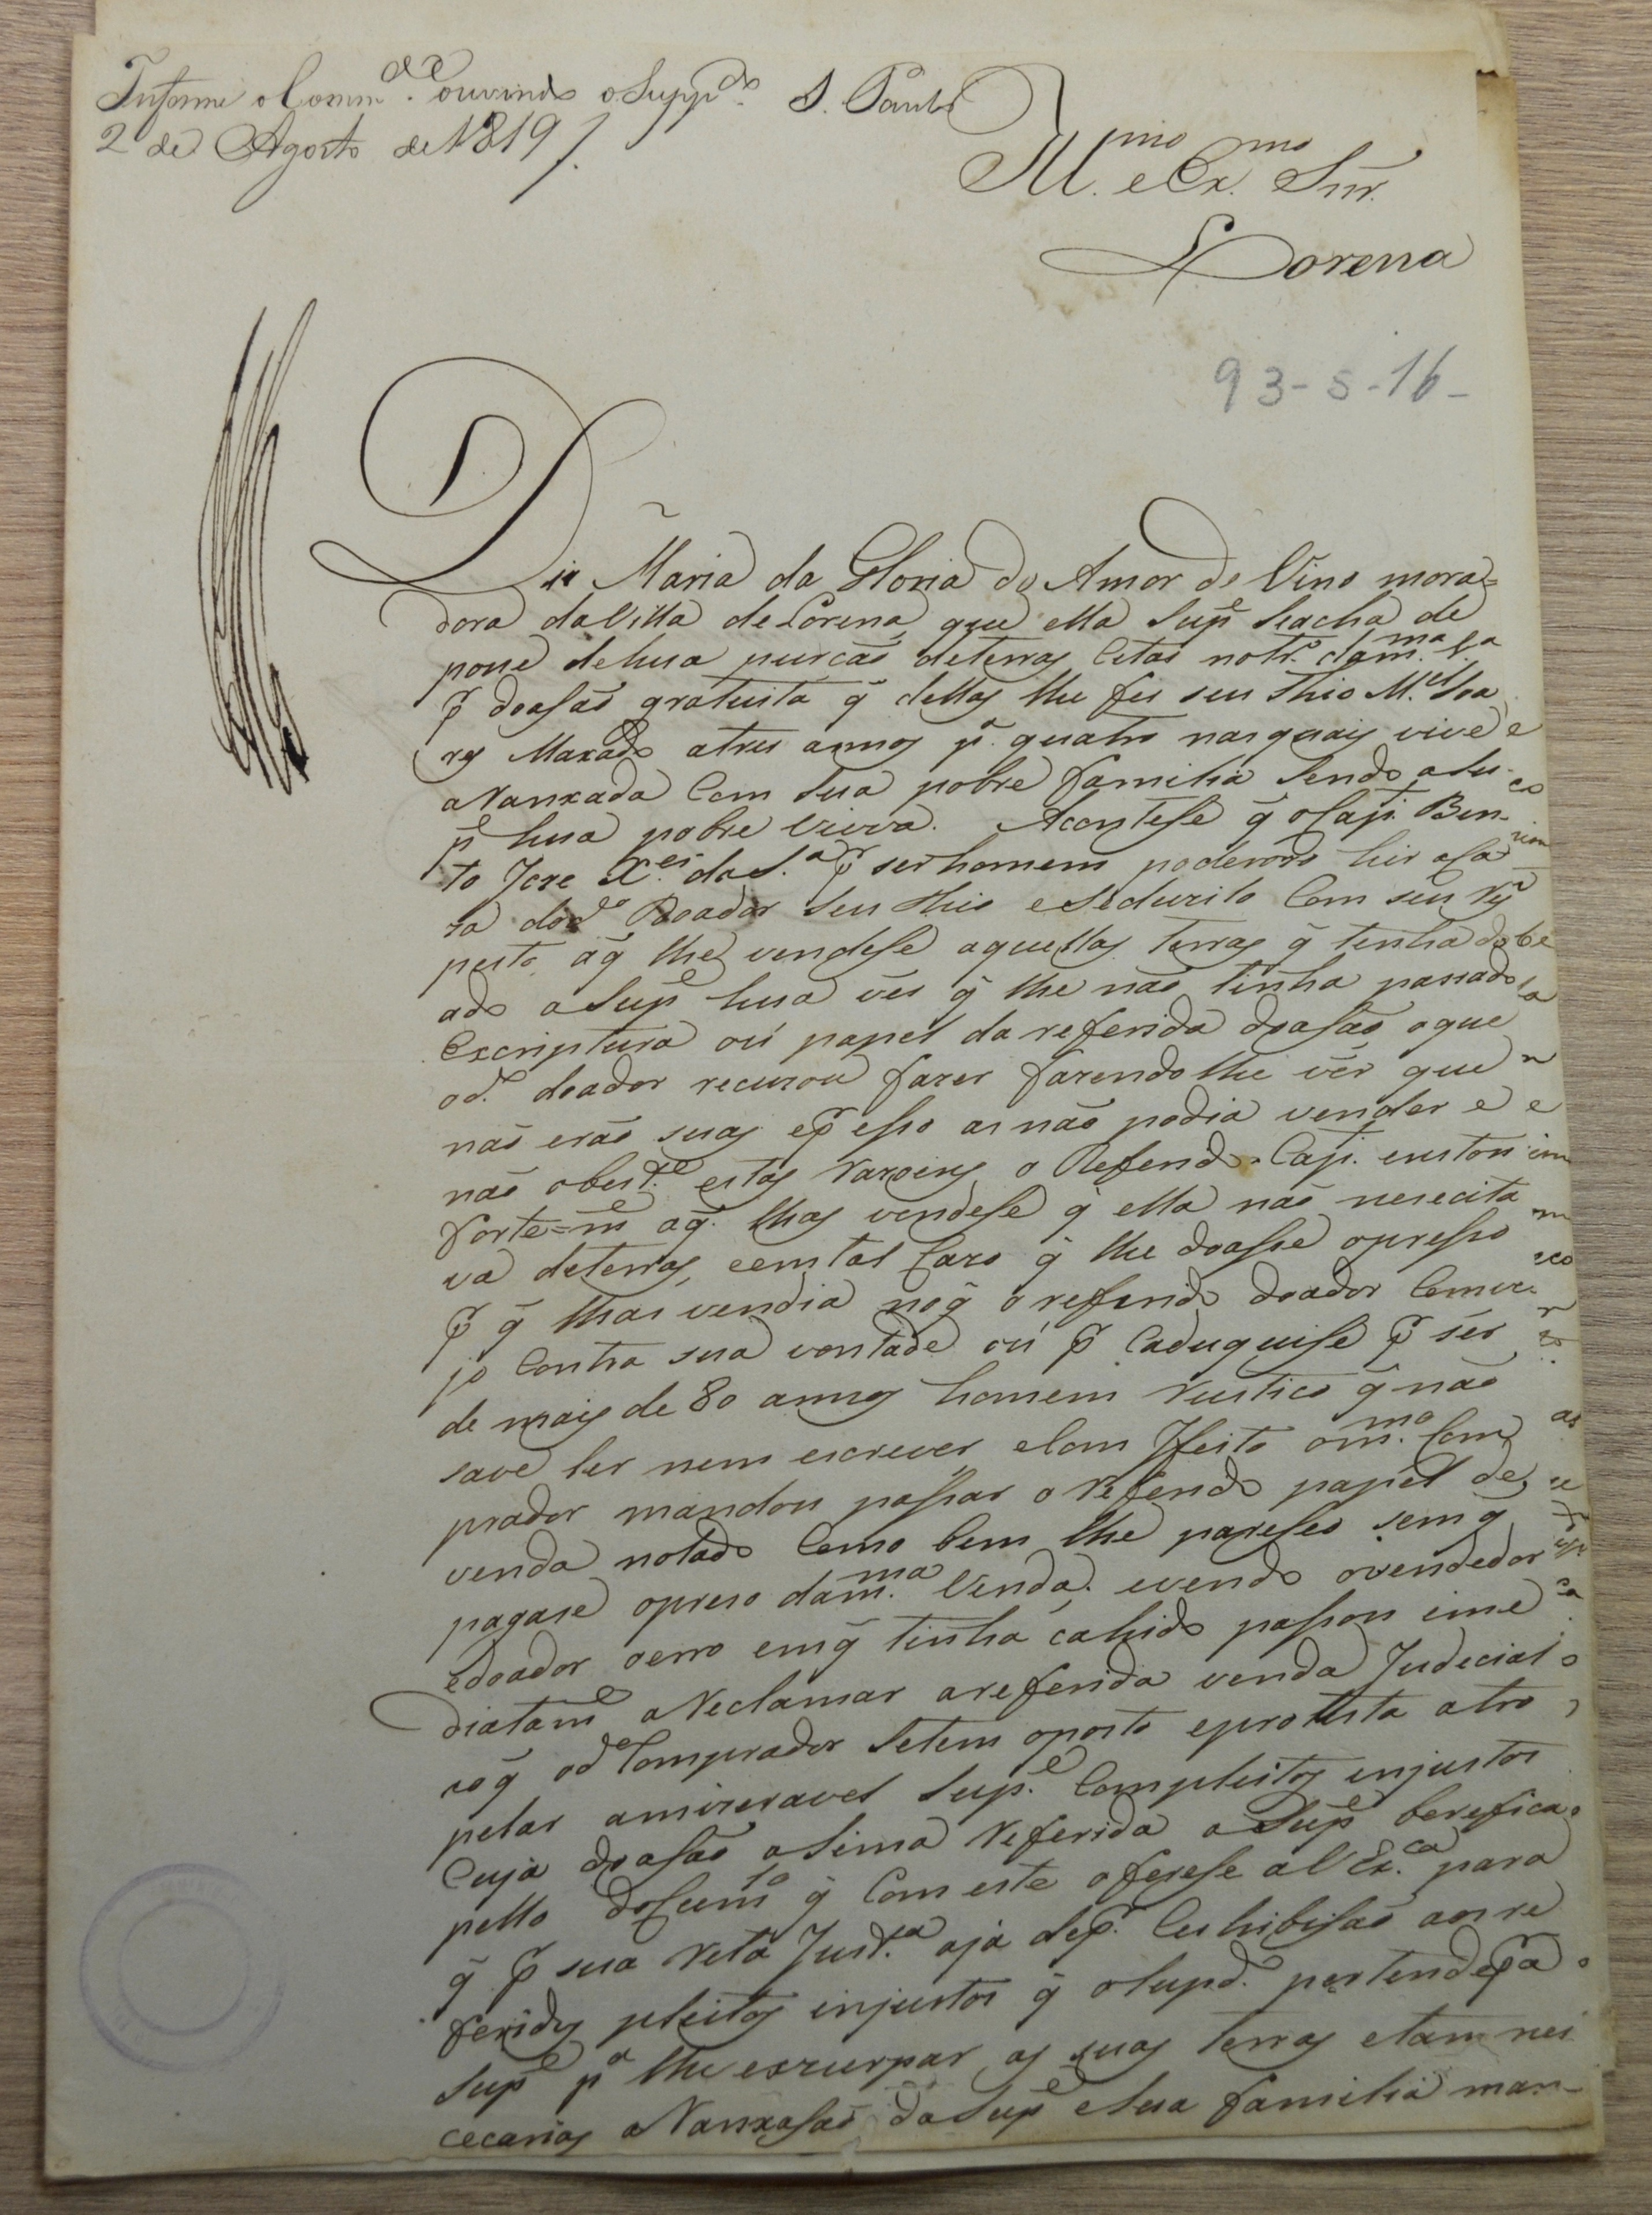 Informe o Comm.de ouvindo o Supp.do S. Paulo
2 de Agosto de 1819
Ill.mo e Ex.mo Snr.
Lorena
93-5-16-
Diz Maria da Gloria do Amor de Vino mora=
dora da Villa de Lorena que ella Sup.e se acha de
posse de hua purcaõ de terras Citas no tr.o da m.ma V.a
p.r doasaõ gratuita q̃ dellas lhe fes seu thio M.el Soa
res Maxado a tres annos p.a quatro nas quais vive
aRanxada Com sua pobre familia Sendo a Su-
p.e hua pobre Viuva. Acontese q̃ o Cap.m Ben-
to Joze X.er da S.a p.r ser homem poderozo hir a Ca
za do d.o Doador seu thio e seduzilo Com seu Res
peito a q̃ lhe vendese aquellas terras q̃ tinha do
ado a Sup.e hua ves q̃ lhe naõ tinha passado
Escriptura ou papel da referida doasaõ o que
o d.o doador recuzou fazer fazendo lhe ver que
naõ eraõ suas e p.r esso as naõ podia vender e
naõ obest.e estas Razoens o Referido Cap.m enstou
forte=m.e a q̃ lhas vendese q̃ ella naõ nesecita
va de terras, e em tal Cazo q̃ lhe doasse o presso
p.r q̃ lhas vendia no q̃ o referido doador Comve
jo Contra sua vontade ou p.r Caduquise p.r ser
de mais de 80 annos homem Rustico q̃ naõ
save ler nem escrever, e Com Ifeito o m.mo Com
prador mandou passar o Referido papel de
venda notado Como bem lhe pareseo sem q̃
pagase o preso da m.ma Venda; e vendo o vendedor
e doador o erro em q̃ tinha cahido passou ime
diatam.e a Reclamar a referida venda Judecial
ao q̃ o d.o Comprador se tem oposto e protesta atro
pelar a mizeravel Sup.e Com pleitos injustos
Cuja doasaõ a Sima Referida a Sup.e berefica
pello docum.to q̃ Com este oferese a V Ex.ca para
q̃ p.r sua Reta Just.a aja de p.r Cuhibisaõ aos re
feridos pleitos injustos q̃ o Supd.o pertende p.r a
Sup.e p.a lhe exzurpar as suas terras e tam nes
cecarias aRanxasaõ da Sup.e e Sua familia man-